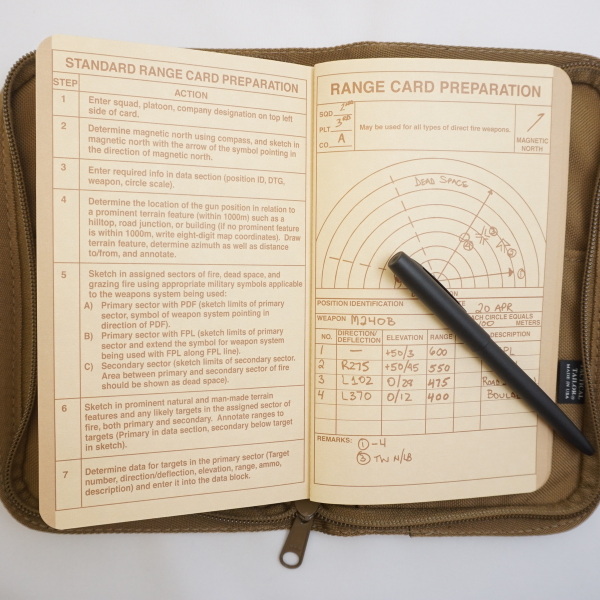 STANDARD RANGE CARD PREPARATION
STEP ACTION
1 Enter squad, platoon, company designation on top left
side of card.
2 Determine magnetic north using compass, and sketch in
magnetic north with the arrow of the symbol pointing in
the direction of magnetic north.
3 Enter required info in data section (position ID, DTG,
weapon, circle scale).
4 Determine the location of the gun position in relation to
a prominent terrain feature (within 1000m) such as a
hilltop, road junction, or building (if no prominent feature
is within 1000m, write eight-digit map coordinates). Draw
terrain feature, determine azimuth as well as distance
to/from, and annotate.
5 Sketch in assigned sectors of fire, dead space, and
grazing fire using appropriate military symbols applicable
to the weapons system being used:
A) Primary sector with PDF (sketch limits of primary
sector, symbol of weapon system pointing in
direction of PDF).
B) Primary sector with FPL (sketch limits of primary
sector and extend the symbol for weapon system
being used with FPL along FPL line).
C) Secondary sector (sketch limits of secondary sector.
Area between primary and secondary sector of fire
should be shown as dead space).
6 Sketch in prominent natural and man-made terrain
features and any likely targets in the assigned sector of
fire, both primary and secondary. Annotate ranges to
targets (Primary in data section, secondary below target
in sketch).
7 Determine data for targets in the primary sector (Target
number, direction/deflection, elevation, range, ammo,
description) and enter it into the data block.
RANGE CARD PREPARATION
SQD. 2nd
PLT. 3RD
CO. A
May be used for all types of direct fire weapons.
MAGNETIC
NORTH
DEAD SPACE
POSITION IDENTIFICATION
20 APR
WEAPON M240B
EACH CIRCLE EQUALS
METERS
NO. DIRECTION/
DEFLECTION ELEVATION RANGE DESCRIPTION
1 — +50/3 600
2 R275 +50/45 550
3 L102 475
4 L370 0/12 400
REMARKS: ① - 4
③ TW N/LB
TAILOR
MADE IN USA